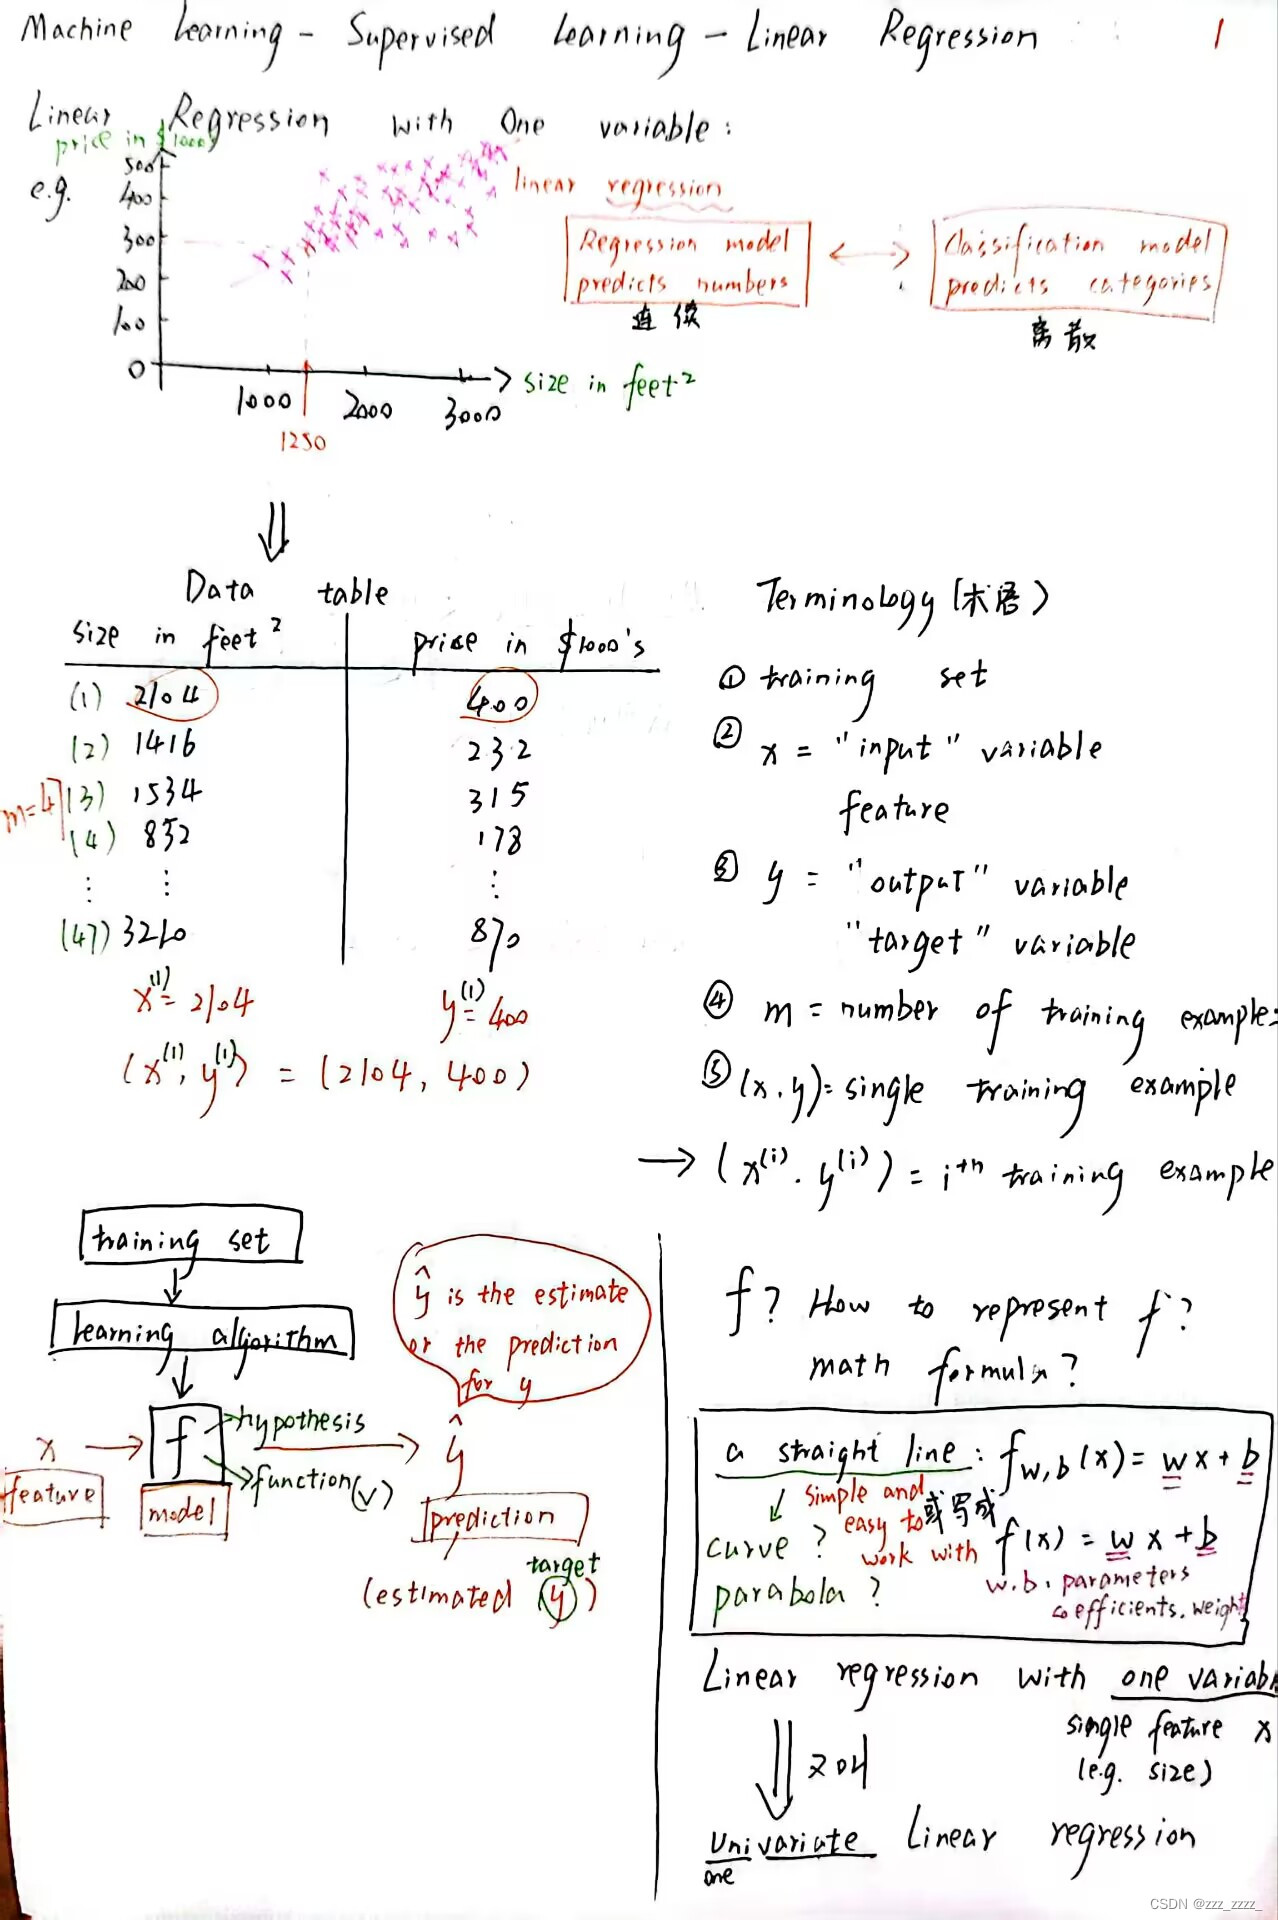 Machine Learning - Supervised Learning - Linear Regression 1
Linear Regression with One variable:
price in $1000's
e.g.
500
400
300
200
100
0
1000 2000 3000
1250
size in feet²
linear regression
Regression model
predicts numbers
连续
Classification model
predicts categories
离散
Data table
size in feet² price in $1000's
(1) 2104 400
(2) 1416 232
(3) 1534 315
m=4
(4) 852 178
⋮ ⋮ ⋮
(47) 3210 870
x⁽¹⁾= 2104 y⁽¹⁾= 400
(x⁽¹⁾, y⁽¹⁾) = (2104, 400)
Terminology (术语)
① training set
② x = "input" variable
feature
③ y = "output" variable
"target" variable
④ m = number of training example
⑤ (x, y) = single training example
→ (x⁽ⁱ⁾. y⁽ⁱ⁾) = iᵗʰ training example
training set
learning algorithm
x → f hypothesis → ŷ
function(√)
feature
model
prediction
target
(estimated y)
ŷ is the estimate
or the prediction
for y
f? How to represent f?
math formula?
a straight line: f w,b (x) = wx + b
simple and
easy to
work with
或写成
f(x) = wx + b
curve?
parabola?
w.b. parameters
coefficients. weight
Linear regression with one variab
single feature x
(e.g. size)
Univariate Linear regression
one
CSDN @zzz_zzzz_